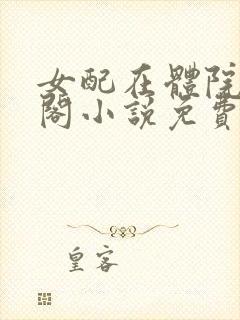 女配在體院
閣小說免費
皇客